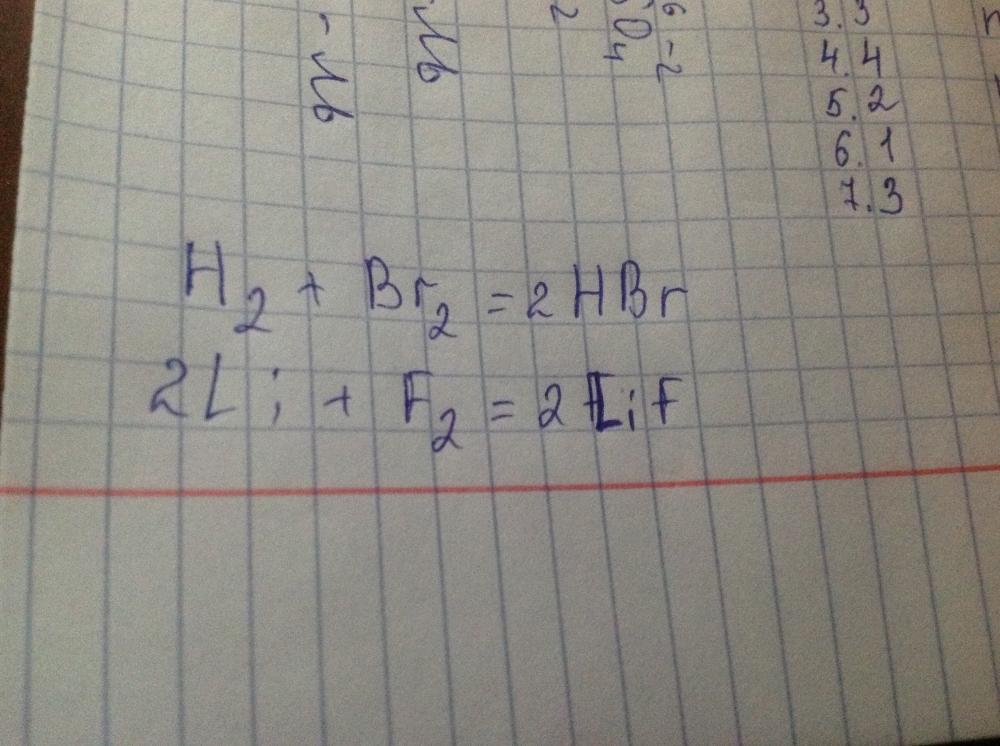 3.3
4.4
5.2
6.1
7.3
H₂ + Br₂ = 2HBr
2Li + F₂ = 2LiF